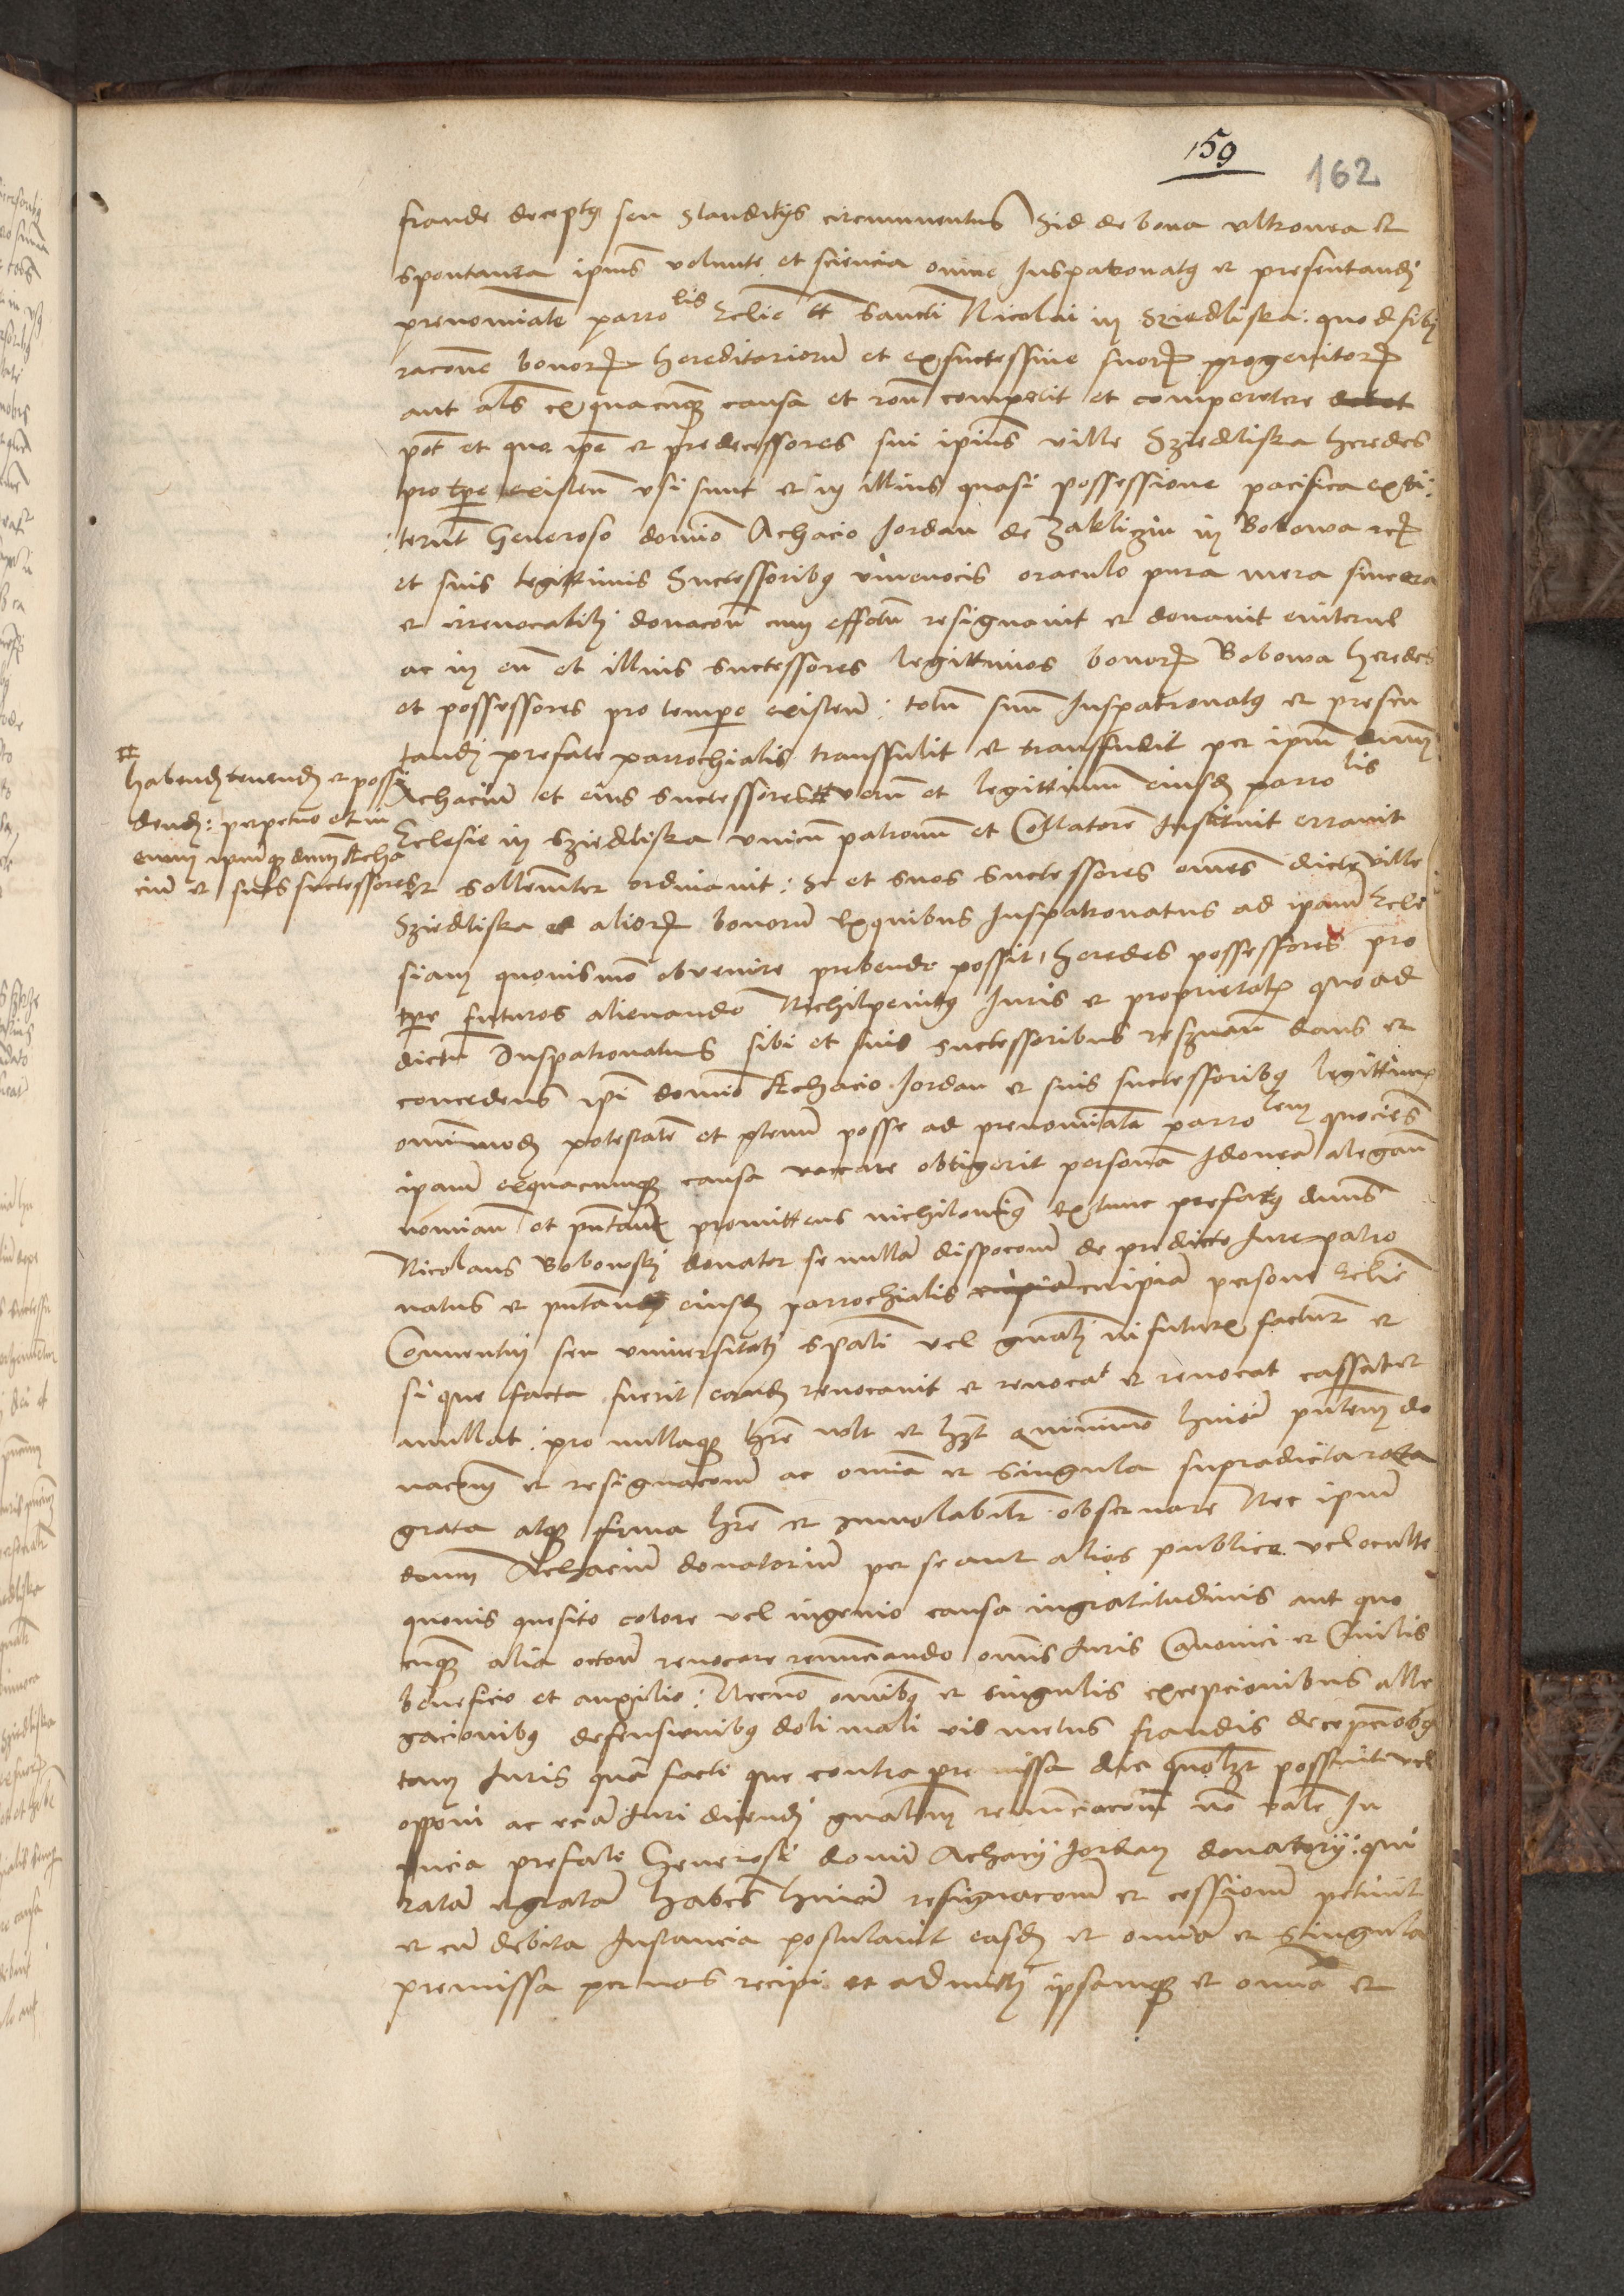 159
162
fraude deceptus seu blanditijs circumuentus Sed de bona vltronea et
spontanea ipius volunte et sciencia omne Iuspatronatus et presentandi
prenominate parrolis Eclie tt Sancti Nicolai in Sziedliska: quod sibi
racone bonorum hereditariorum et ex successione suorum progenitorum
aut als ex quacunque causa et rone competit et competere debet
pot et quo ipe et predecessores sui ipius ville Sziedliska heredes
pro tpe existen vsi sunt et in illius quasi possessione pacifica exti:
:terunt Generoso domino Achacio Iordan de Zakliczin in Bobowa
et suis legittimis Successoribus viuenocis oraculo pura mera sincera
et irreuocabili donacone cum effectu resignauit et donauit
ac in eum et illius successores legittimos bonorum Bobowa heredes
et possessores pro tempore existen: totum suum Iuspatronatus et presen
tandi prefate parrochialis transtulit et transfudit per ipum dnum
Achacium et eius successores # verum et legittimum eiusdem parrolis
Eclesie in Sziedliska vnicum patronum et Collatorem Instituit creauit
et sollemniter ordinauit: Se et suos successores omnes dicte ville
Sziedliska et aliorum bonorum Ex quibus Iuspatronatus ad ipam Ecle
siam quouismodo obuenire prebende possit, heredes possessores pro
tpe futuros alienando Nichilpenitus Iuris et proprietatis quoad
dictum Iuspatronatus sibi et suis successoribus reseruan dans et
concedens ipi domino Achacio Iordan et suis successoribus legittimis
omnimodam potestatem et plenum posse ad prenominatam parrolem quociens
ipam ex quacunque causa vaccare obtigerit personam Idoneam
nominan et pntan promittens nichilominus extunc prefatus dnus
Nicolaus Bobowski donator se nullam dispoconem de predicto Iurepatro
natus et pntan eiusdem parrochialis cuipiam cuipiam persone Eclie
Conuentui seu vniuersitati spali vel gnali in futurum facturum et
si que facta fuerit eandem reuocauit et reuocat et reuocat cassat et
annullat: pro nullaque hre wlt et hzt quinimo huiusmodi pntem do
nacoem et resignaconem ac omnia et singula supradicta rata
grata atque firma hre et inuiolabiliter obseruare Nec ipum
dnum Achacium donatorium per se aut alios publice vel oculte
quouis quesito colore vel ingenio causa ingratitudinis aut quo
cunque alia reuocare renunciando omnis Iuris Canonici et Ciuilis
beneficio et auxilio: Necno omnibus et singulis excepcionibus alle
gacionibus defensionibus doli mali vis metus fraudis decepcionibus
tam Iuris quam facti que contra premissa dici quolzt possunt vel
opponi ac eciam Iuri dicendi gnalem renunciacoem non valere In
pncia prefati Generosi domini Achacij Iordan donatorij: qui
ratam et gratam habens huiusmodi resignaconem et cessionem petiuit
et cum debita Instancia postulauit easdem et omnia et singula
premissa per nos recipi et admitti ipsamque et omnia et
#
habendum tenendum et possi
dendum: perpetuo et in
euum ipumque dnum Acha
cium et suos successores